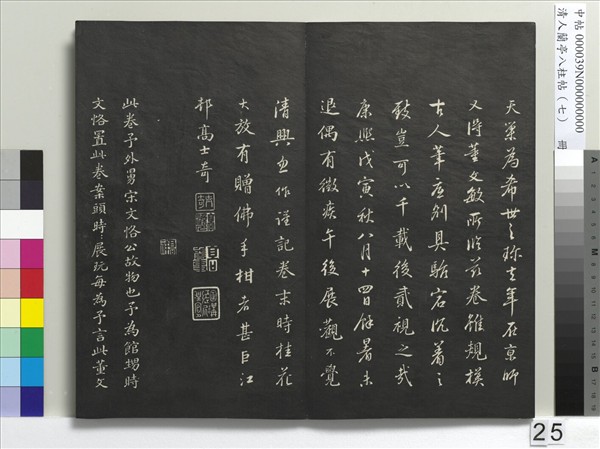 天策為希世之珎去年在京師
又得董文敏所臨茲卷雖規模
古人筆意別具駘宕沉着之
致豈可以千載後貳視之哉
康熙戊寅秋八月十四日餘暑未
退偶有微疾午後展觀不覺
清興忽作謹記卷末時桂花
大放有贈佛手柑者甚巨江
邨高士奇
此卷予外舅宋文恪公故物也予為館甥時
文恪置此卷案頭時時展玩每為予言此董文
中帖 000039N000000000
清人蘭亭八柱帖（七）
冊
25